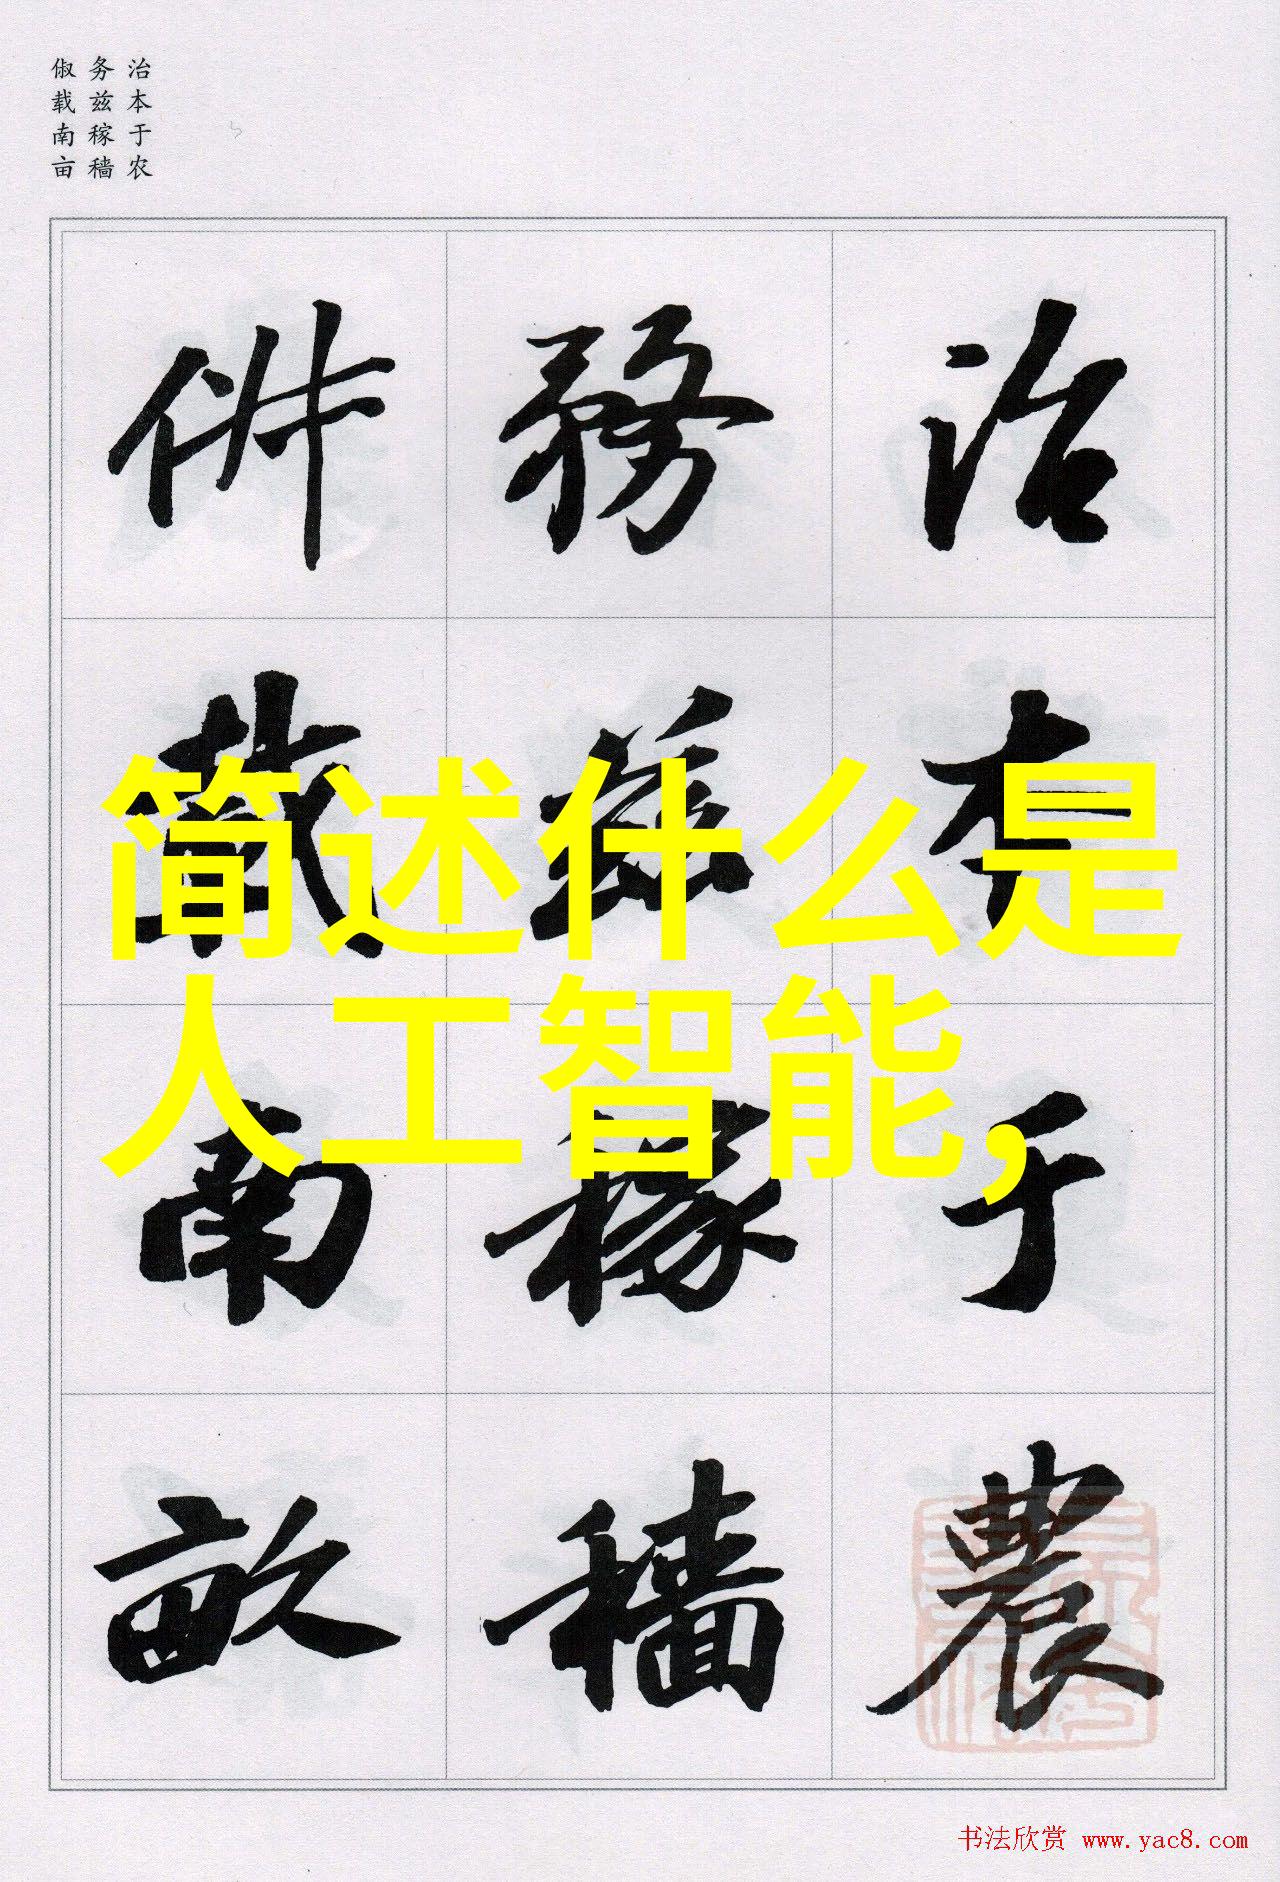 治本于农
务兹稼穑
俶载南亩
治本于農
務茲稼穡
俶載南畝
简述什么是
人工智能，
书法欣赏 www.yac8.com